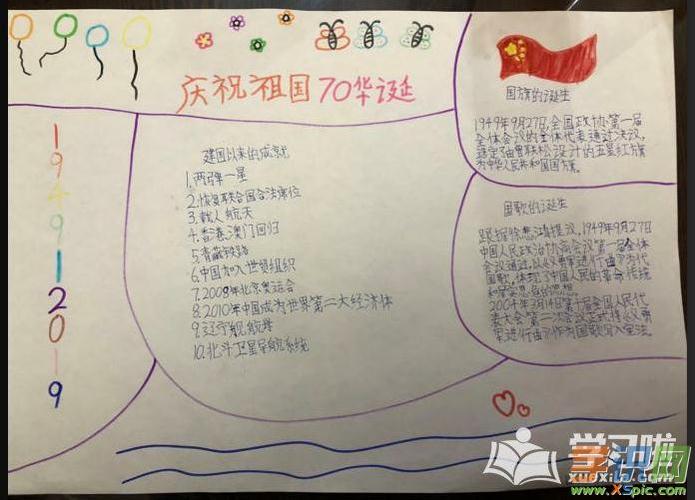 庆祝祖国70华诞
1
9
4
9
1
2
0
1
9
建国以来的成就
1.两弹一星
2.恢复联合国合法席位
3.载人航天
4.香港澳门回归
5.青藏铁路
6.中国加入世贸组织
7.2008年北京奥运会
8.2010年中国成为世界第二大经济体
9.辽宁舰航母
10.北斗卫星导航系统
国旗的诞生
1949年9月27日,全国政协第一届
全体会议的全体代表通过决议,
选定了由曾联松设计的五星红旗
为中华人民共和国国旗。
国歌的诞生
跟据徐悲鸿提议,1949年9月27日
中国人民政治协商会议第一届全体
会议通过,以义勇军进行曲为代
国歌,体现了中国人民的革命传统
和居安思危的思想
2004年3月14日第十届全国人民代
表大会第二次会议正式将义勇
军进行曲作为国歌写入宪法。
学习啦
xuexila.com
www.XSpic.com